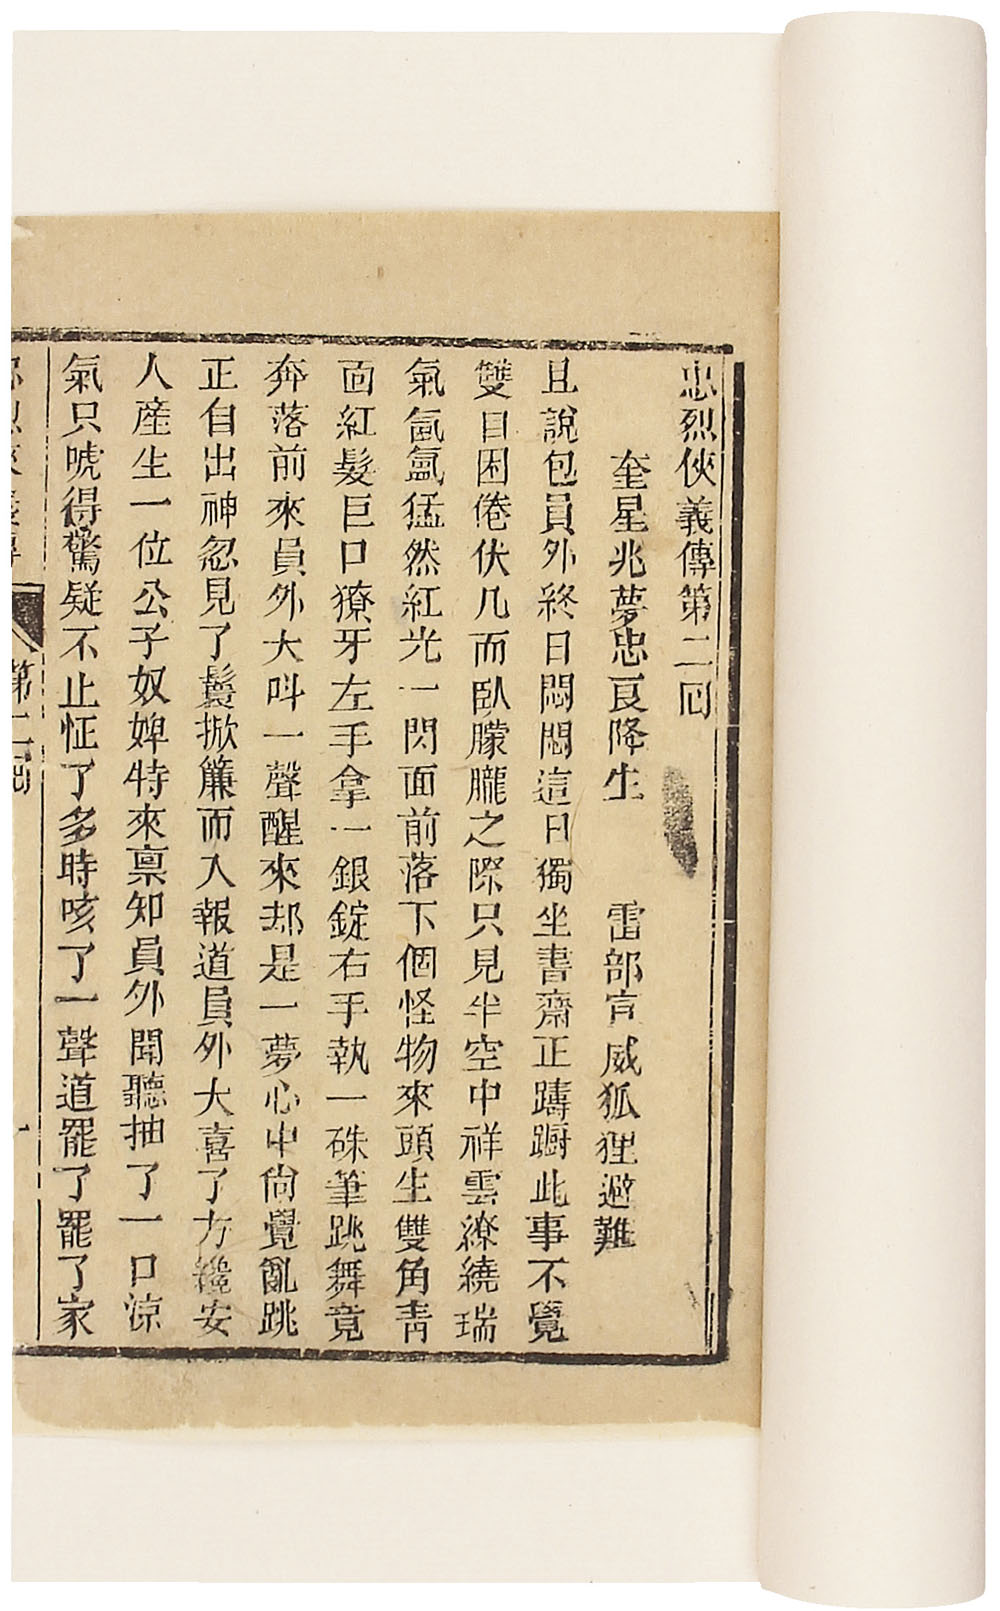 忠烈俠義傳第二囘
奎星兆夢忠良降生　雷部宣威狐狸避難
且說包員外終日悶悶這日獨坐書齋正躊躕此事不覺
雙目困倦伏几而臥朦朧之際只見半空中祥雲繚繞瑞
氣氤氳猛然紅光一閃面前落下個怪物來頭生雙角靑
面紅髮巨口獠牙左手拿一銀錠右手執一硃筆跳舞竟
奔落前來員外大叫一聲醒來却是一夢心中尙覺亂跳
正自出神忽見了鬟掀簾而入報道員外大喜了方纔安
人產生一位公子奴婢特來禀知員外聞聽抽了一口涼
氣只唬得驚疑不止怔了多時咳了一聲道罷了罷了家
忠烈俠義傳　第二囘　一